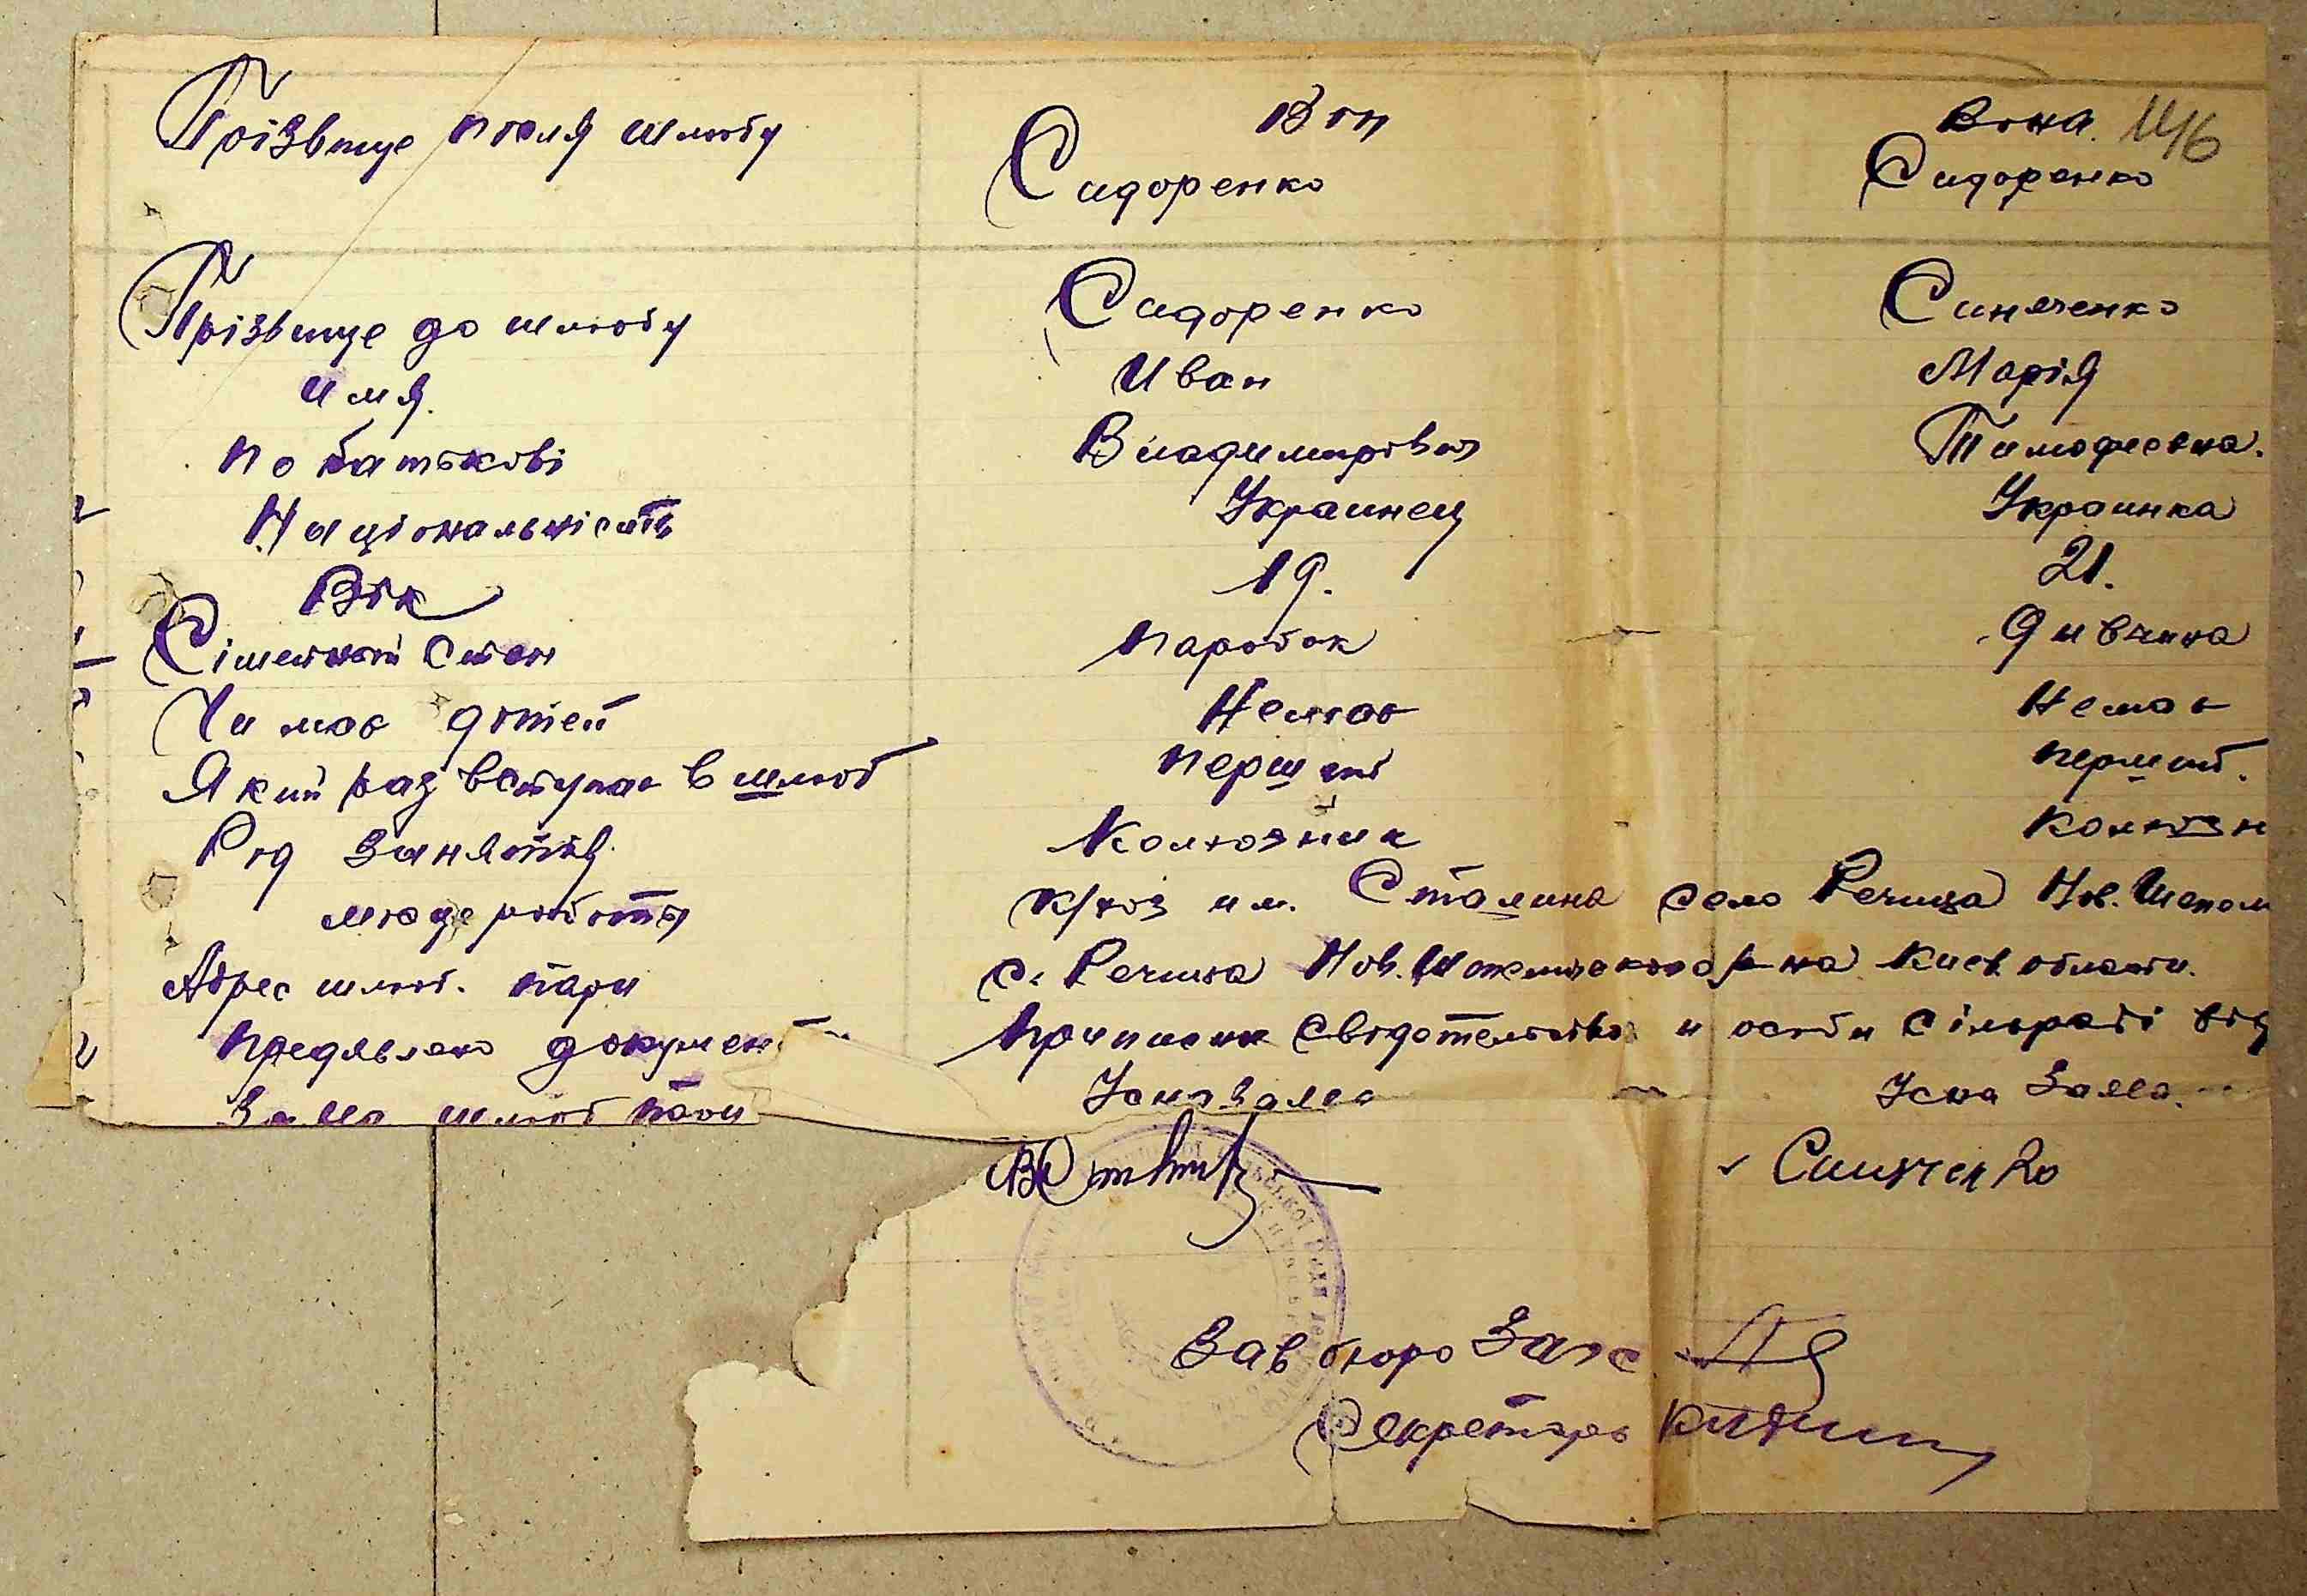 Він Вона 146
Прізвище після шлюбу Сидоренко Сидоренко
Прізвище до шлюбу Сидоренко Синяченко
Имя. Иван Марія
По батькові Владимирович Тимофеевна.
Національність Украинец Украинка
Вік 19. 21.
Сімейний стан Паробок Дивчина
Чи має дітей Немає Немає
Який раз вступає в шлюб Перший Перший.
Род заняття Колхозник Колхозн
місце роботи к/хоз им. Сталина село Речица Нов. Шепел
Адрес шлюб. пари с. Речица Нов. Шепеличского р-на Киев области.
Предявлено документ Приписне свідотельство и особи сільраді від
Заява шлюб пари Усна заява Усна Заява.
Синяченко
Зав бюро Загс
Секретарь